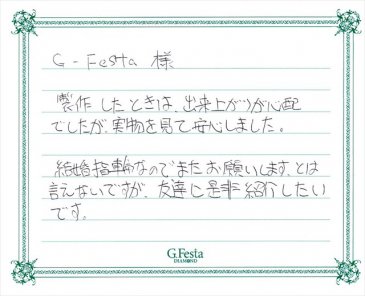 G-Festa 様
製作したときは、出来上がりが心配
でしたが、実物を見て安心しました。
結婚指輪なのでまたお願いします、とは
言えないですが、友達に是非紹介したい
です。
G.Festa
DIAMOND